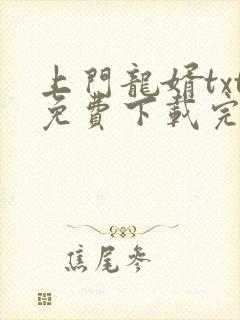 上門龍婿txt
免費下載完
焦尾參